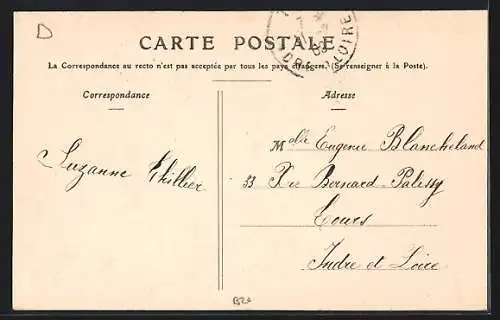 D
CARTE POSTALE
La Correspondance au recto n'est pas acceptée par tous les pays étrangers. (Se renseigner à la Poste).
Correspondance
Adresse
Mlle Eugenie Blancheland
Suzanne Thillier
33 R. Bernard-Palissy
Tours
Indre et Loire
INDRE-ET-LOIRE
B20